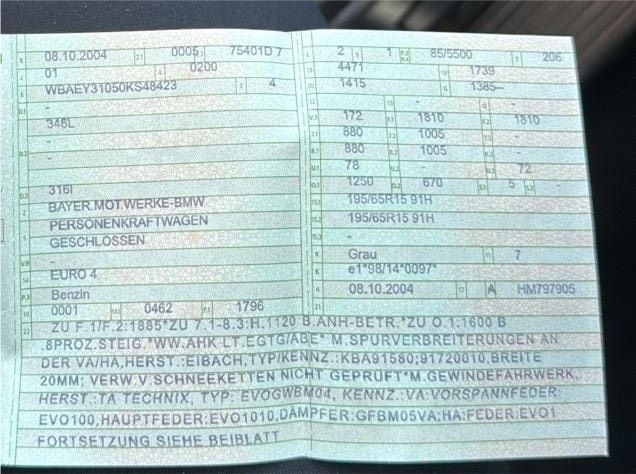 08.10.2004 0005 75401D 7 2 1 85/5500 206
01 0200 4471 1739
WBAEY31050KS48423 4 1415 1385--
- - -
346L 172 1810 1810
- 880 1005 -
- 880 1005 -
78 - 72
316I 1250 670 5 -
BAYER.MOT.WERKE-BMW 195/65R15 91H
PERSONENKRAFTWAGEN 195/65R15 91H
GESCHLOSSEN -
- Grau 7
EURO 4 e1*98/14*0097*
Benzin 08.10.2004 A HM797905
0001 0462 1796
ZU F.1/F.2:1885*ZU 7.1-8.3:H.1120 B.ANH-BETR.*ZU O.1:1600 B
.8PROZ.STEIG.*WW.AHK LT.EGTG/ABE* M.SPURVERBREITERUNGEN AN
DER VA/HA,HERST.:EIBACH,TYP/KENNZ.:KBA91580;91720010,BREITE
20MM; VERW.V.SCHNEEKETTEN NICHT GEPRÜFT*M.GEWINDEFAHRWERK,
HERST.:TA TECHNIX, TYP: EVOGWBM04, KENNZ.:VA:VORSPANNFEDER:
EVO100,HAUPTFEDER:EVO1010,DÄMPFER:GFBM05VA;HA:FEDER:EVO1
FORTSETZUNG SIEHE BEIBLATT